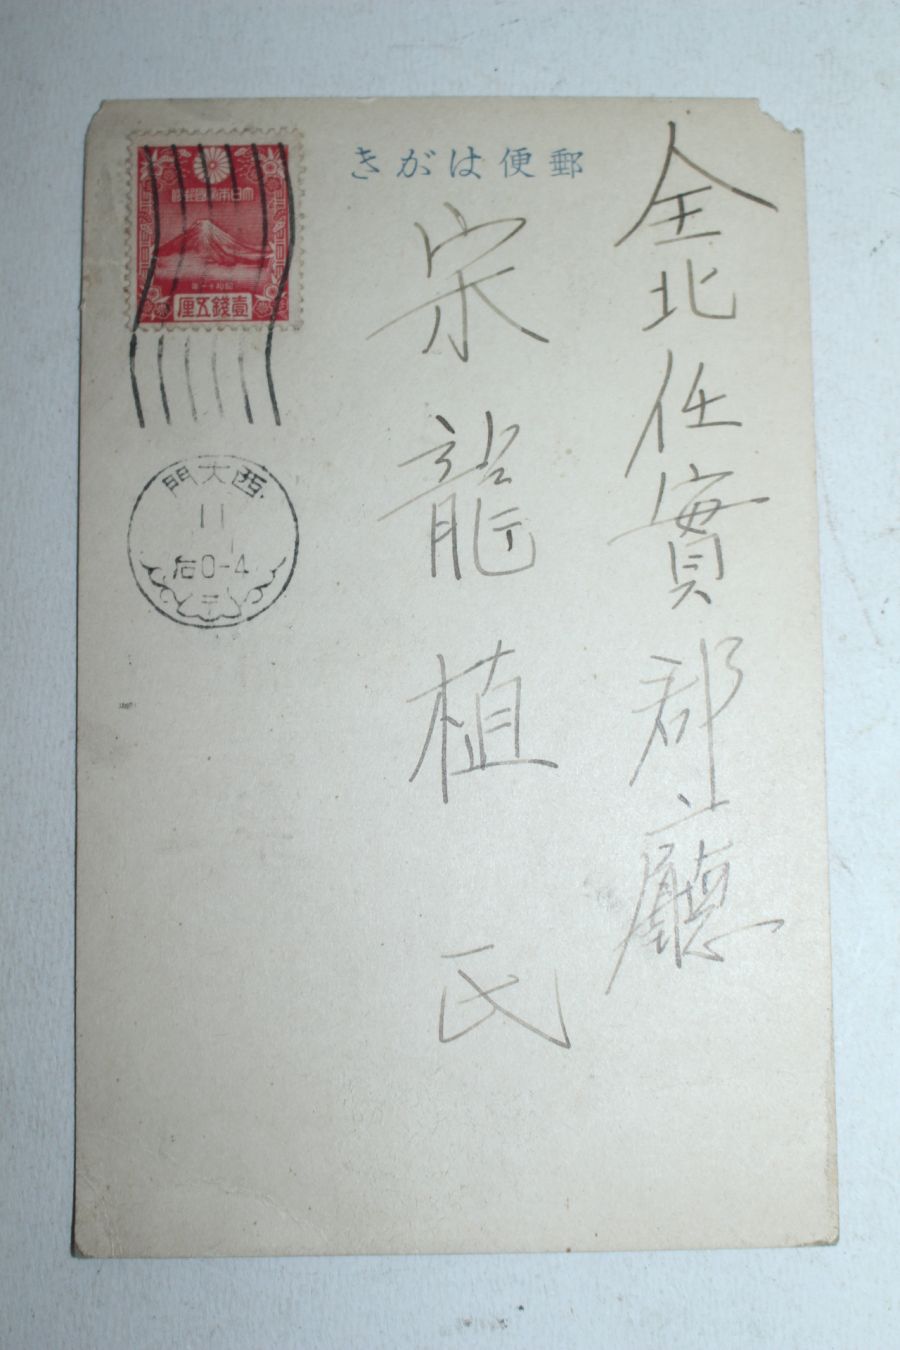 郵便はがき
全北任實郡廳
宋龍植氏
大日本帝國郵便
昭和十一年
壹錢五厘
西大門
11
后0-4